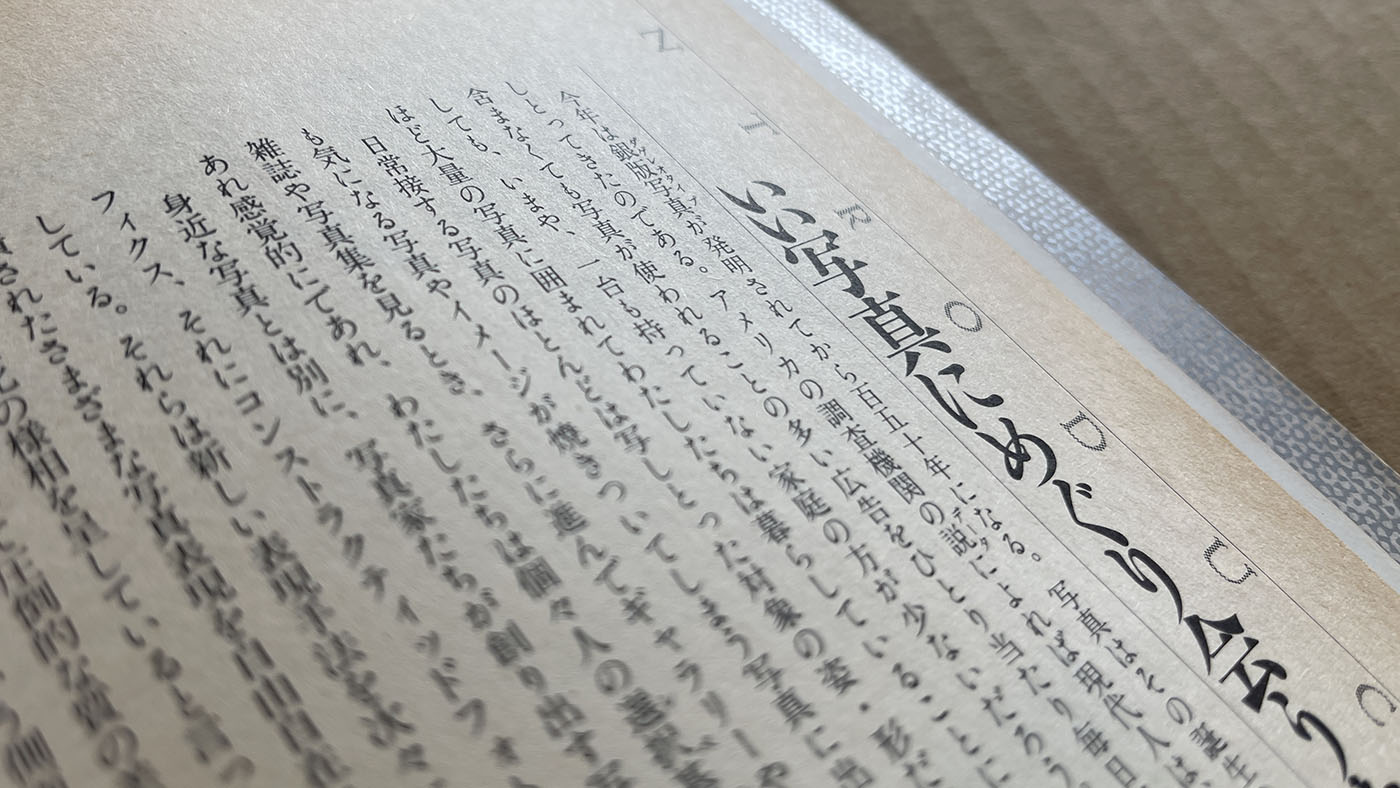 NTRODUC
いい写真にめぐり会う
ダゲレオタイプ
今年は銀版写真が発明されてから百五十年になる。写真はその誕生
しとってきたのである。アメリカの調査機関の説によれば現代人は、
含まなくても写真が使われることの多い広告をひとり当たり毎日
しても、いまや、一台も持っていない家庭の方が少ないだろう
ほど大量の写真に囲まれてわたしたちは暮らしていることに
日常接する写真のほとんどは写しとった対象の姿・形だ
も気になる写真やイメージが焼きついてしまう写真に出
雑誌や写真集を見るとき、さらに進んでギャラリーや
あれ感覚的にであれ、わたしたちは個々人の選択基
身近な写真とは別に、写真家たちが創り出す写
フィクス、それにコンストラクティッドフォ
している。それらは新しい表現手法を次々
されたさまざまな写真表現を自由自在
の様相を呈していると言っ